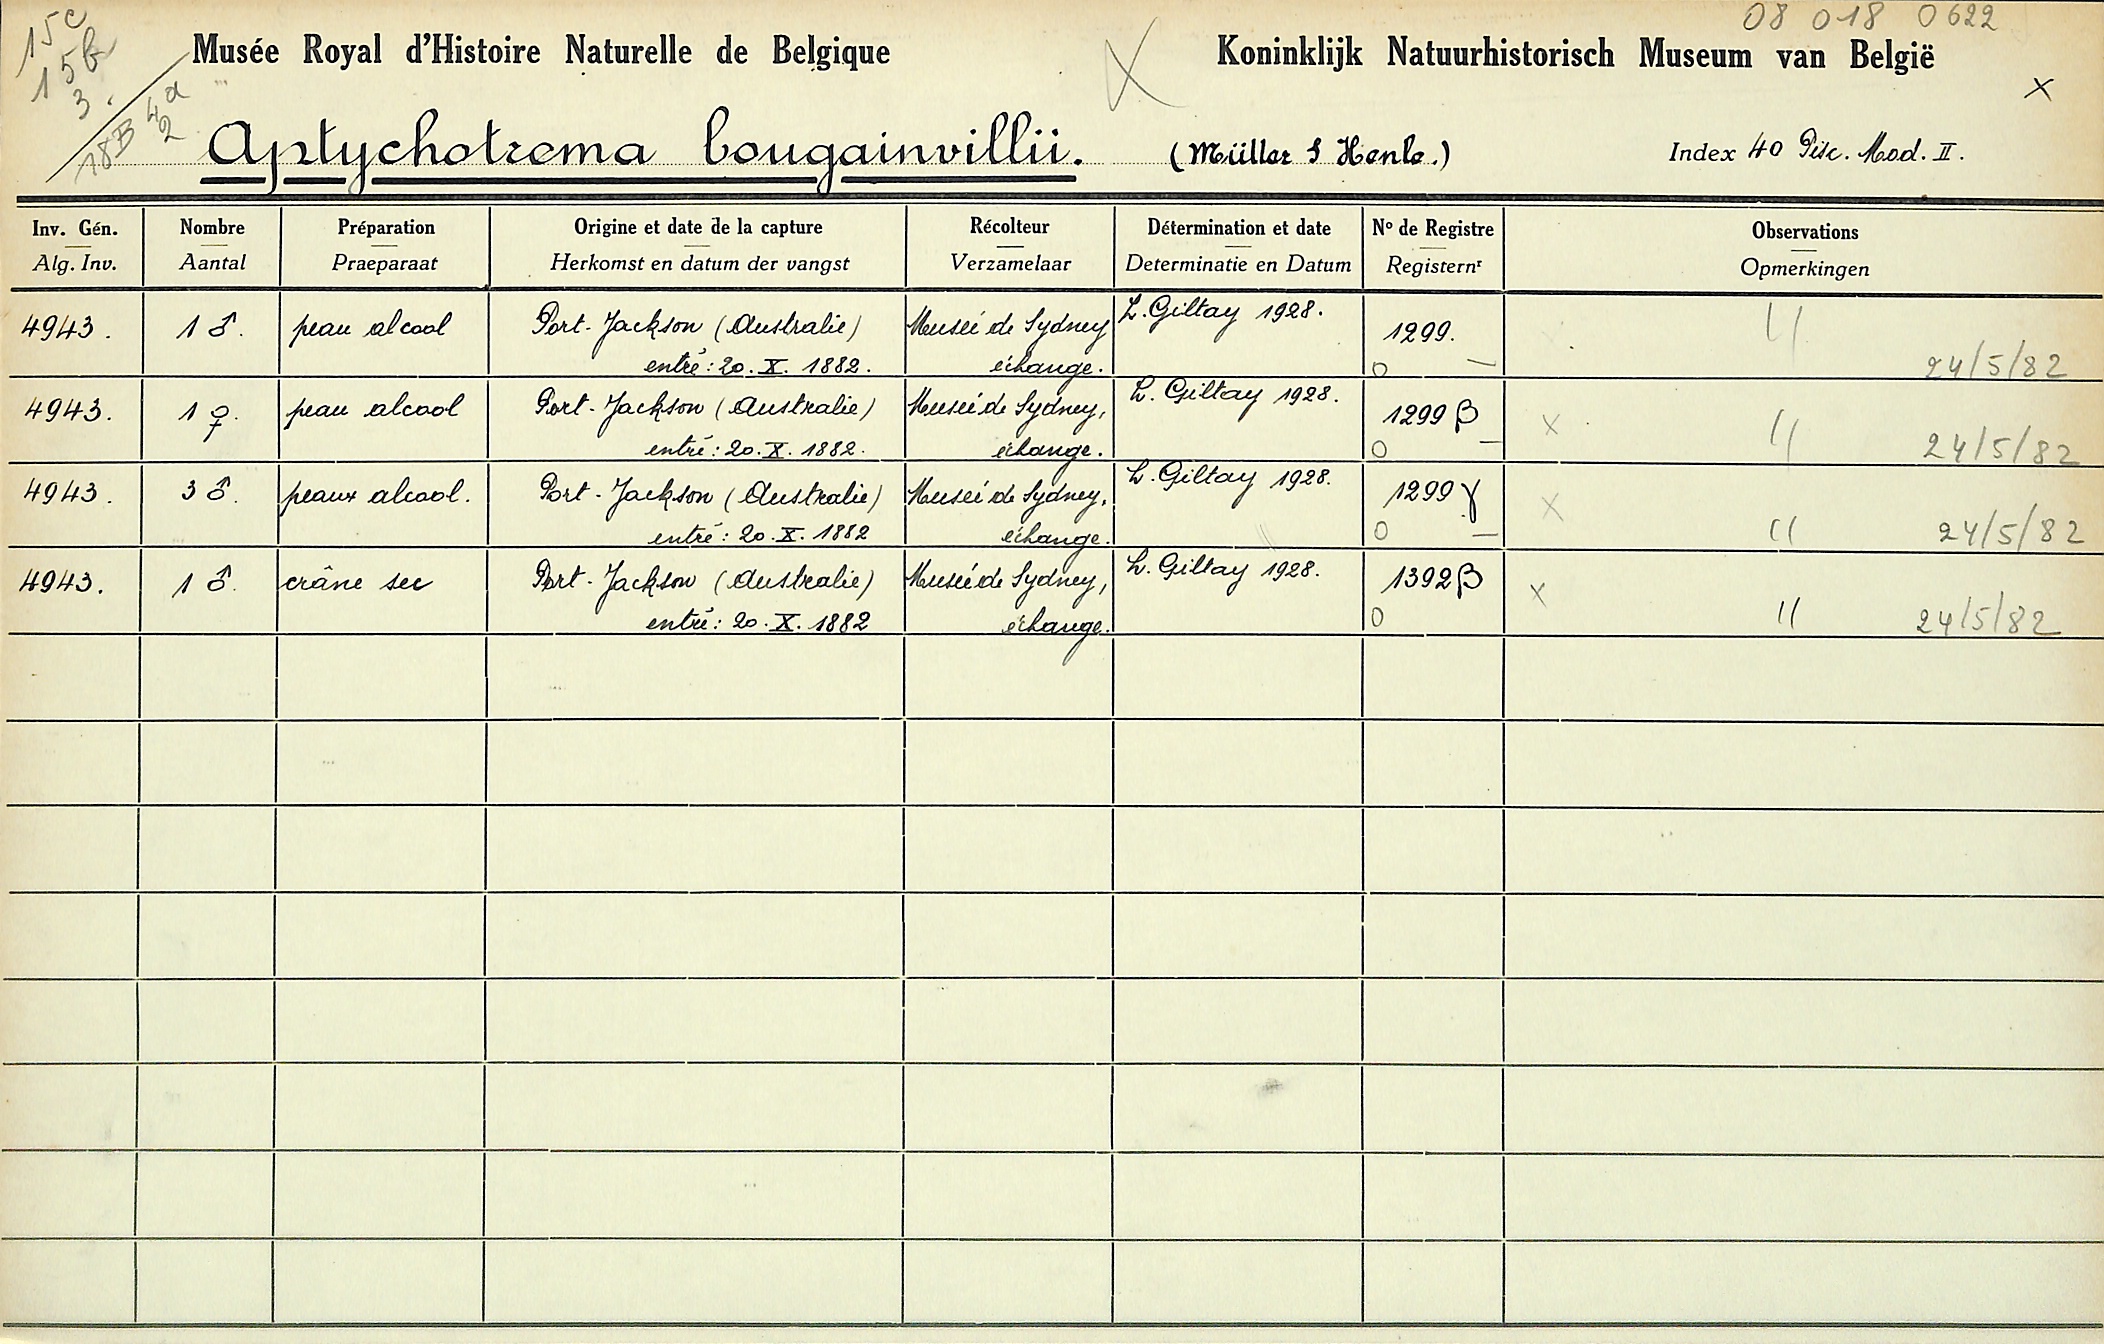 15c
15b
3.
18B 4a
2
08 018 0622
Musée Royal d'Histoire Naturelle de Belgique X Koninklijk Natuurhistorisch Museum van België
X
Aptychotrema bougainvillii. (Müller & Henle.) Index 40 Pisc. Mod. II.
Inv. Gén. Nombre Préparation Origine et date de la capture Récolteur Détermination et date Nº de Registre Observations
Alg. Inv. Aantal Praeparaat Herkomst en datum der vangst Verzamelaar Determinatie en Datum Registernʳ Opmerkingen
4943. 1 ♂. peau alcool Port-Jackson (Australie) Musée de Sydney L. Giltay 1928. 1299. //
entré: 20.X.1882. échange. 0 — 24/5/82
4943. 1 ♀. peau alcool Port-Jackson (Australie) Musée de Sydney, L. Giltay 1928. 1299 β x //
entré: 20.X.1882. échange. 0 — 24/5/82
4943. 3 ♂. peaux alcool. Port-Jackson (Australie) Musée de Sydney, L. Giltay 1928. 1299 γ x //
entré: 20.X.1882 échange. 0 — 24/5/82
4943. 1 ♂. crâne sec Port-Jackson (Australie) Musée de Sydney, L. Giltay 1928. 1392 β x //
entré: 20.X.1882 échange. 0 24/5/82